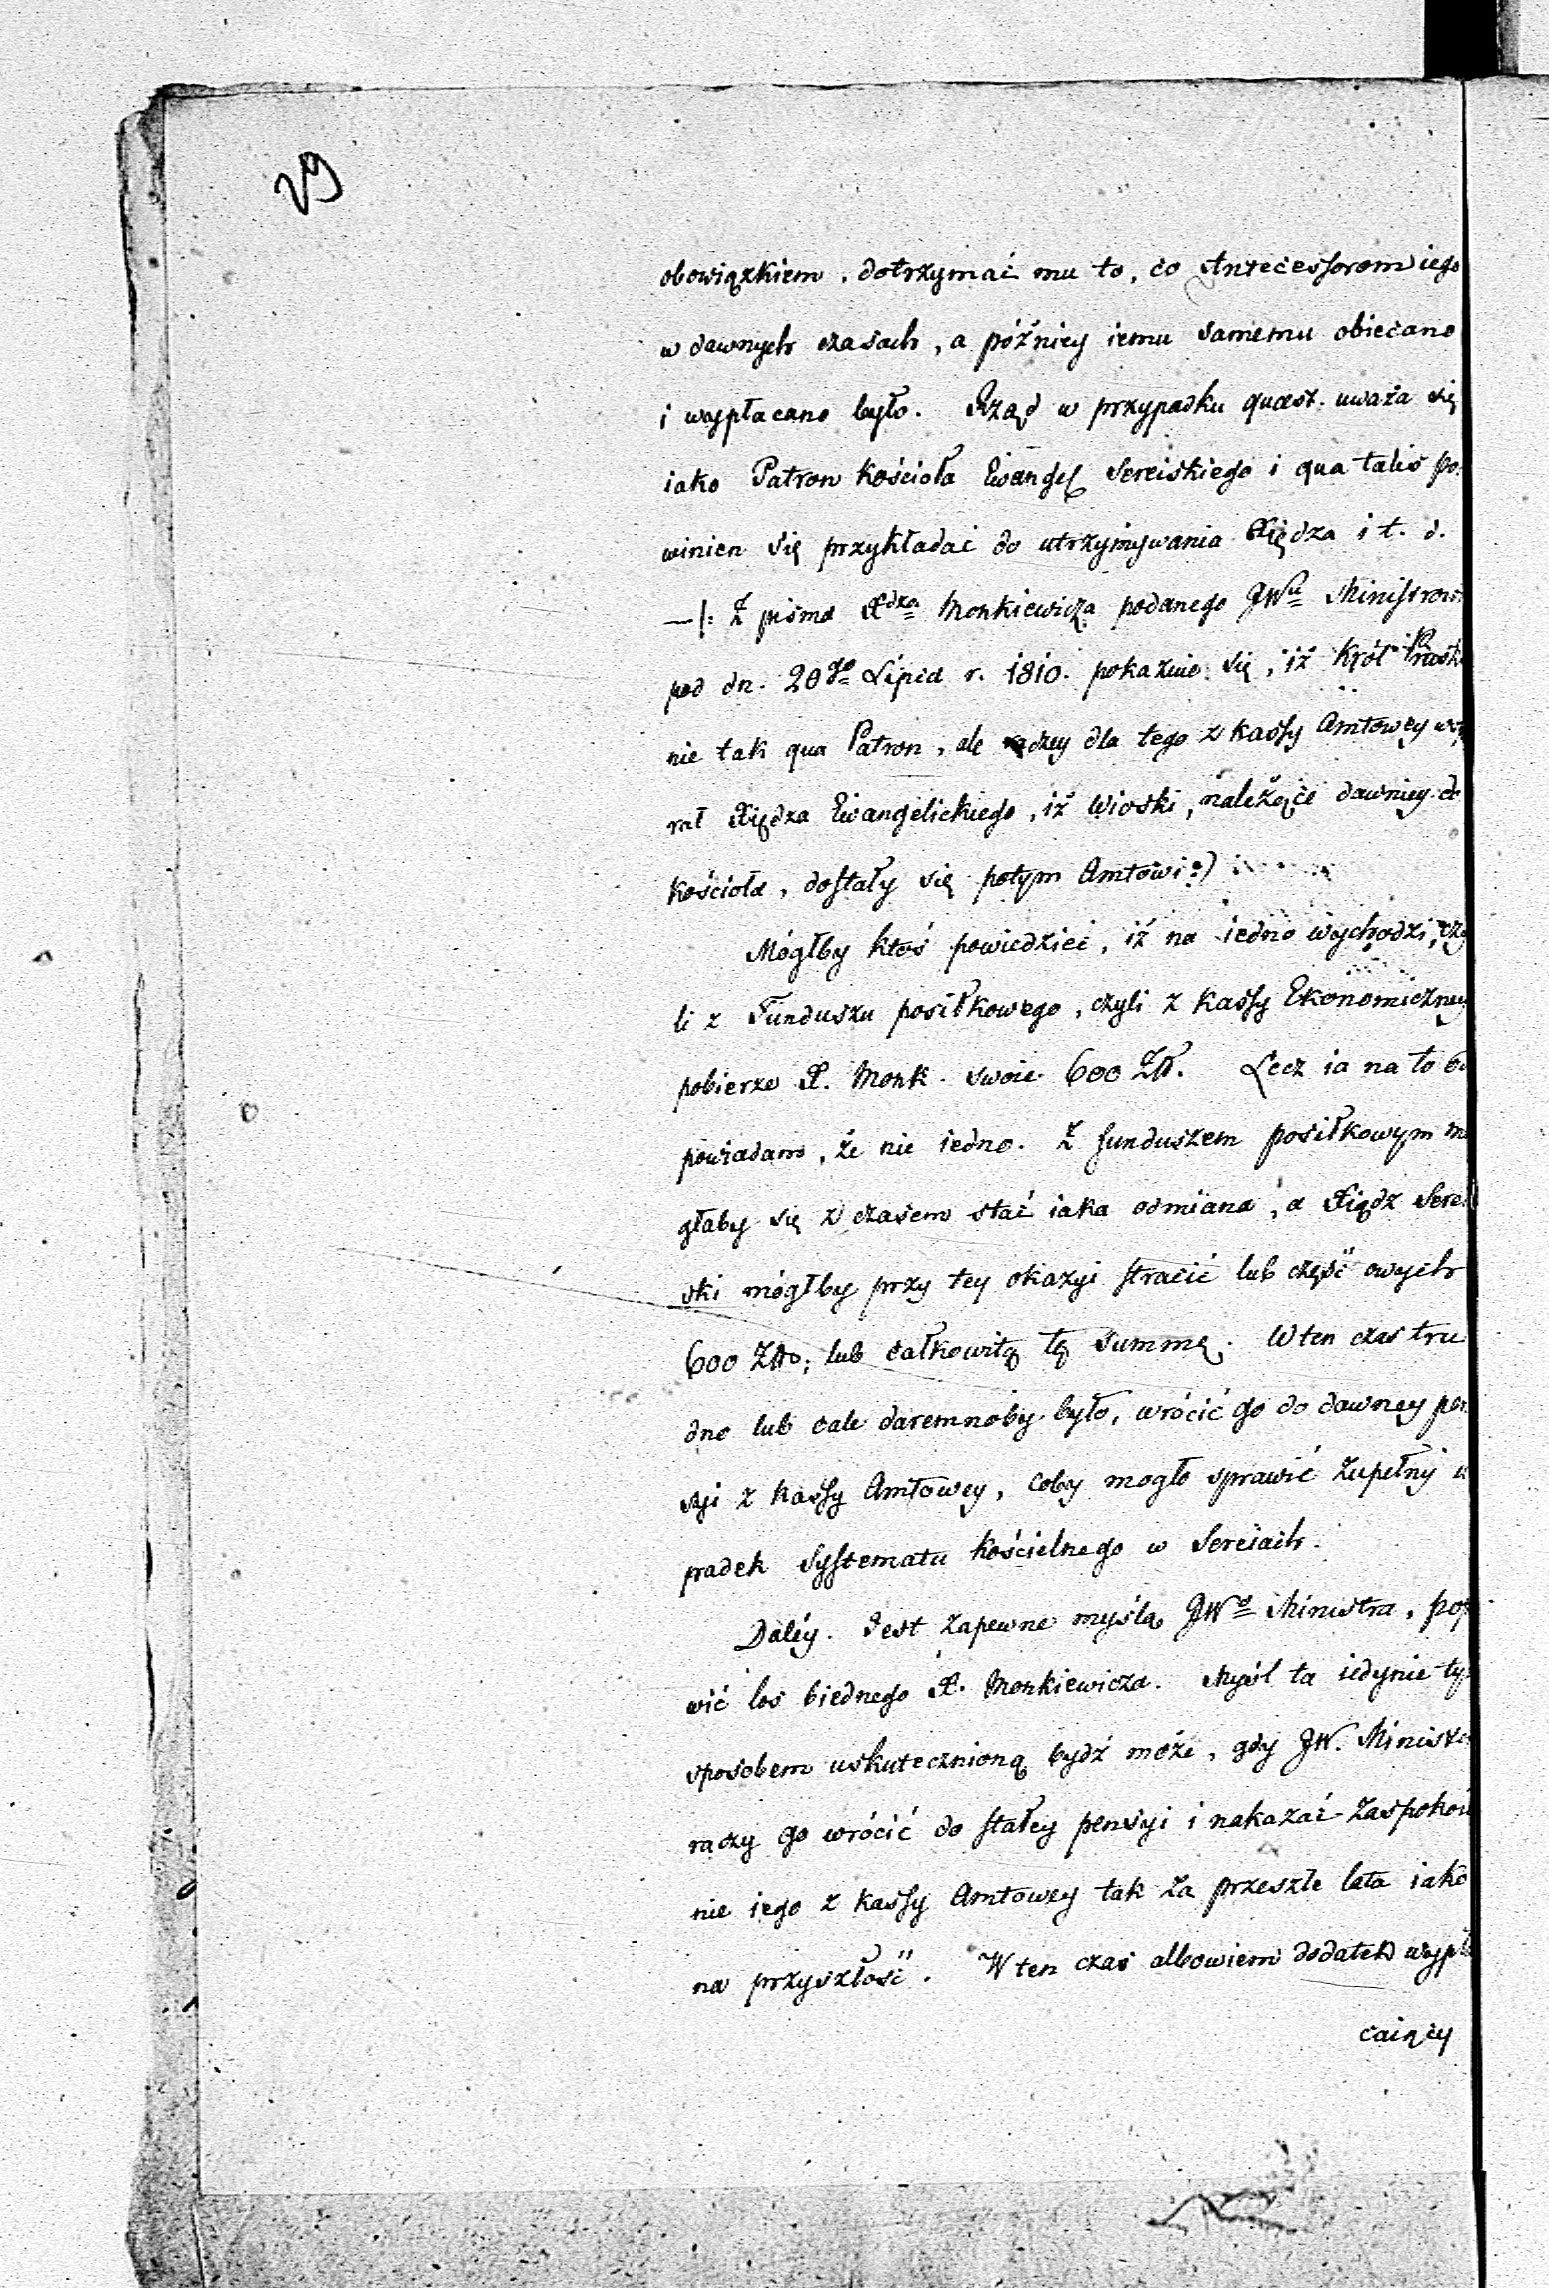 29
obowiązkiem, dotrzymać mu to, co Antecessorom iego
w dawnych czasach, a późniey iemu samemu obiecano
i wypłacano było. Rząd w przypadku quaest. uważa się
iako Patron kościoła Ewangel Sereiskiego i qua talis po-
winien się przykładać do utrzymywania Xiędza i t. d.
—|: Z pisma Xdza Monkiewicza podanego JWu Ministrowi
pod dn. 20go Lipca r. 1810. pokazuie się, iż Król Prusk
nie tak qua Patron, ale raczey dla tego z kassy Amtowey
rał Xiędza Ewangelickiego, iż wioski, należące dawniey do
kościoła, dostały się potym Amtowi:)
Mógłby ktoś powiedzieć, iż na iedno wychodzi, czy
li z Funduszu posiłkowego, czyli z kassy Ekonomiczney
pobierze X. Monk. swoie 600 Zł. Lecz ia na to od
powiadam, że nie iedno. Z funduszem posiłkowym mo
głaby się z czasem stać iaka odmiana, a Xiądz Serei
ski mógłby przy tey okazyi stracić lub część owych
600 Złł, lub całkowitą tę summę. W ten czas tru
dno lub cale daremnoby było, wrócić go do dawney pen
syi z kassy Amtowey, coby mogło sprawić zupełny u
padek systematu kościelnego w Sereiach.
Daléy. Jest zapewne myślą JWo Ministra, pop
wić los biednego X. Monkiewicza. Myśl ta iedynie ty
sposobem uskutecznioną bydź może, gdy JW. Minist
raczy go wrócić do stałey pensyi i nakazać zaspokoie
nie iego z kassy Amtowey tak za przeszłe lata iako
na przyszłość. W ten czas albowiem dodatek wypła
caiącey